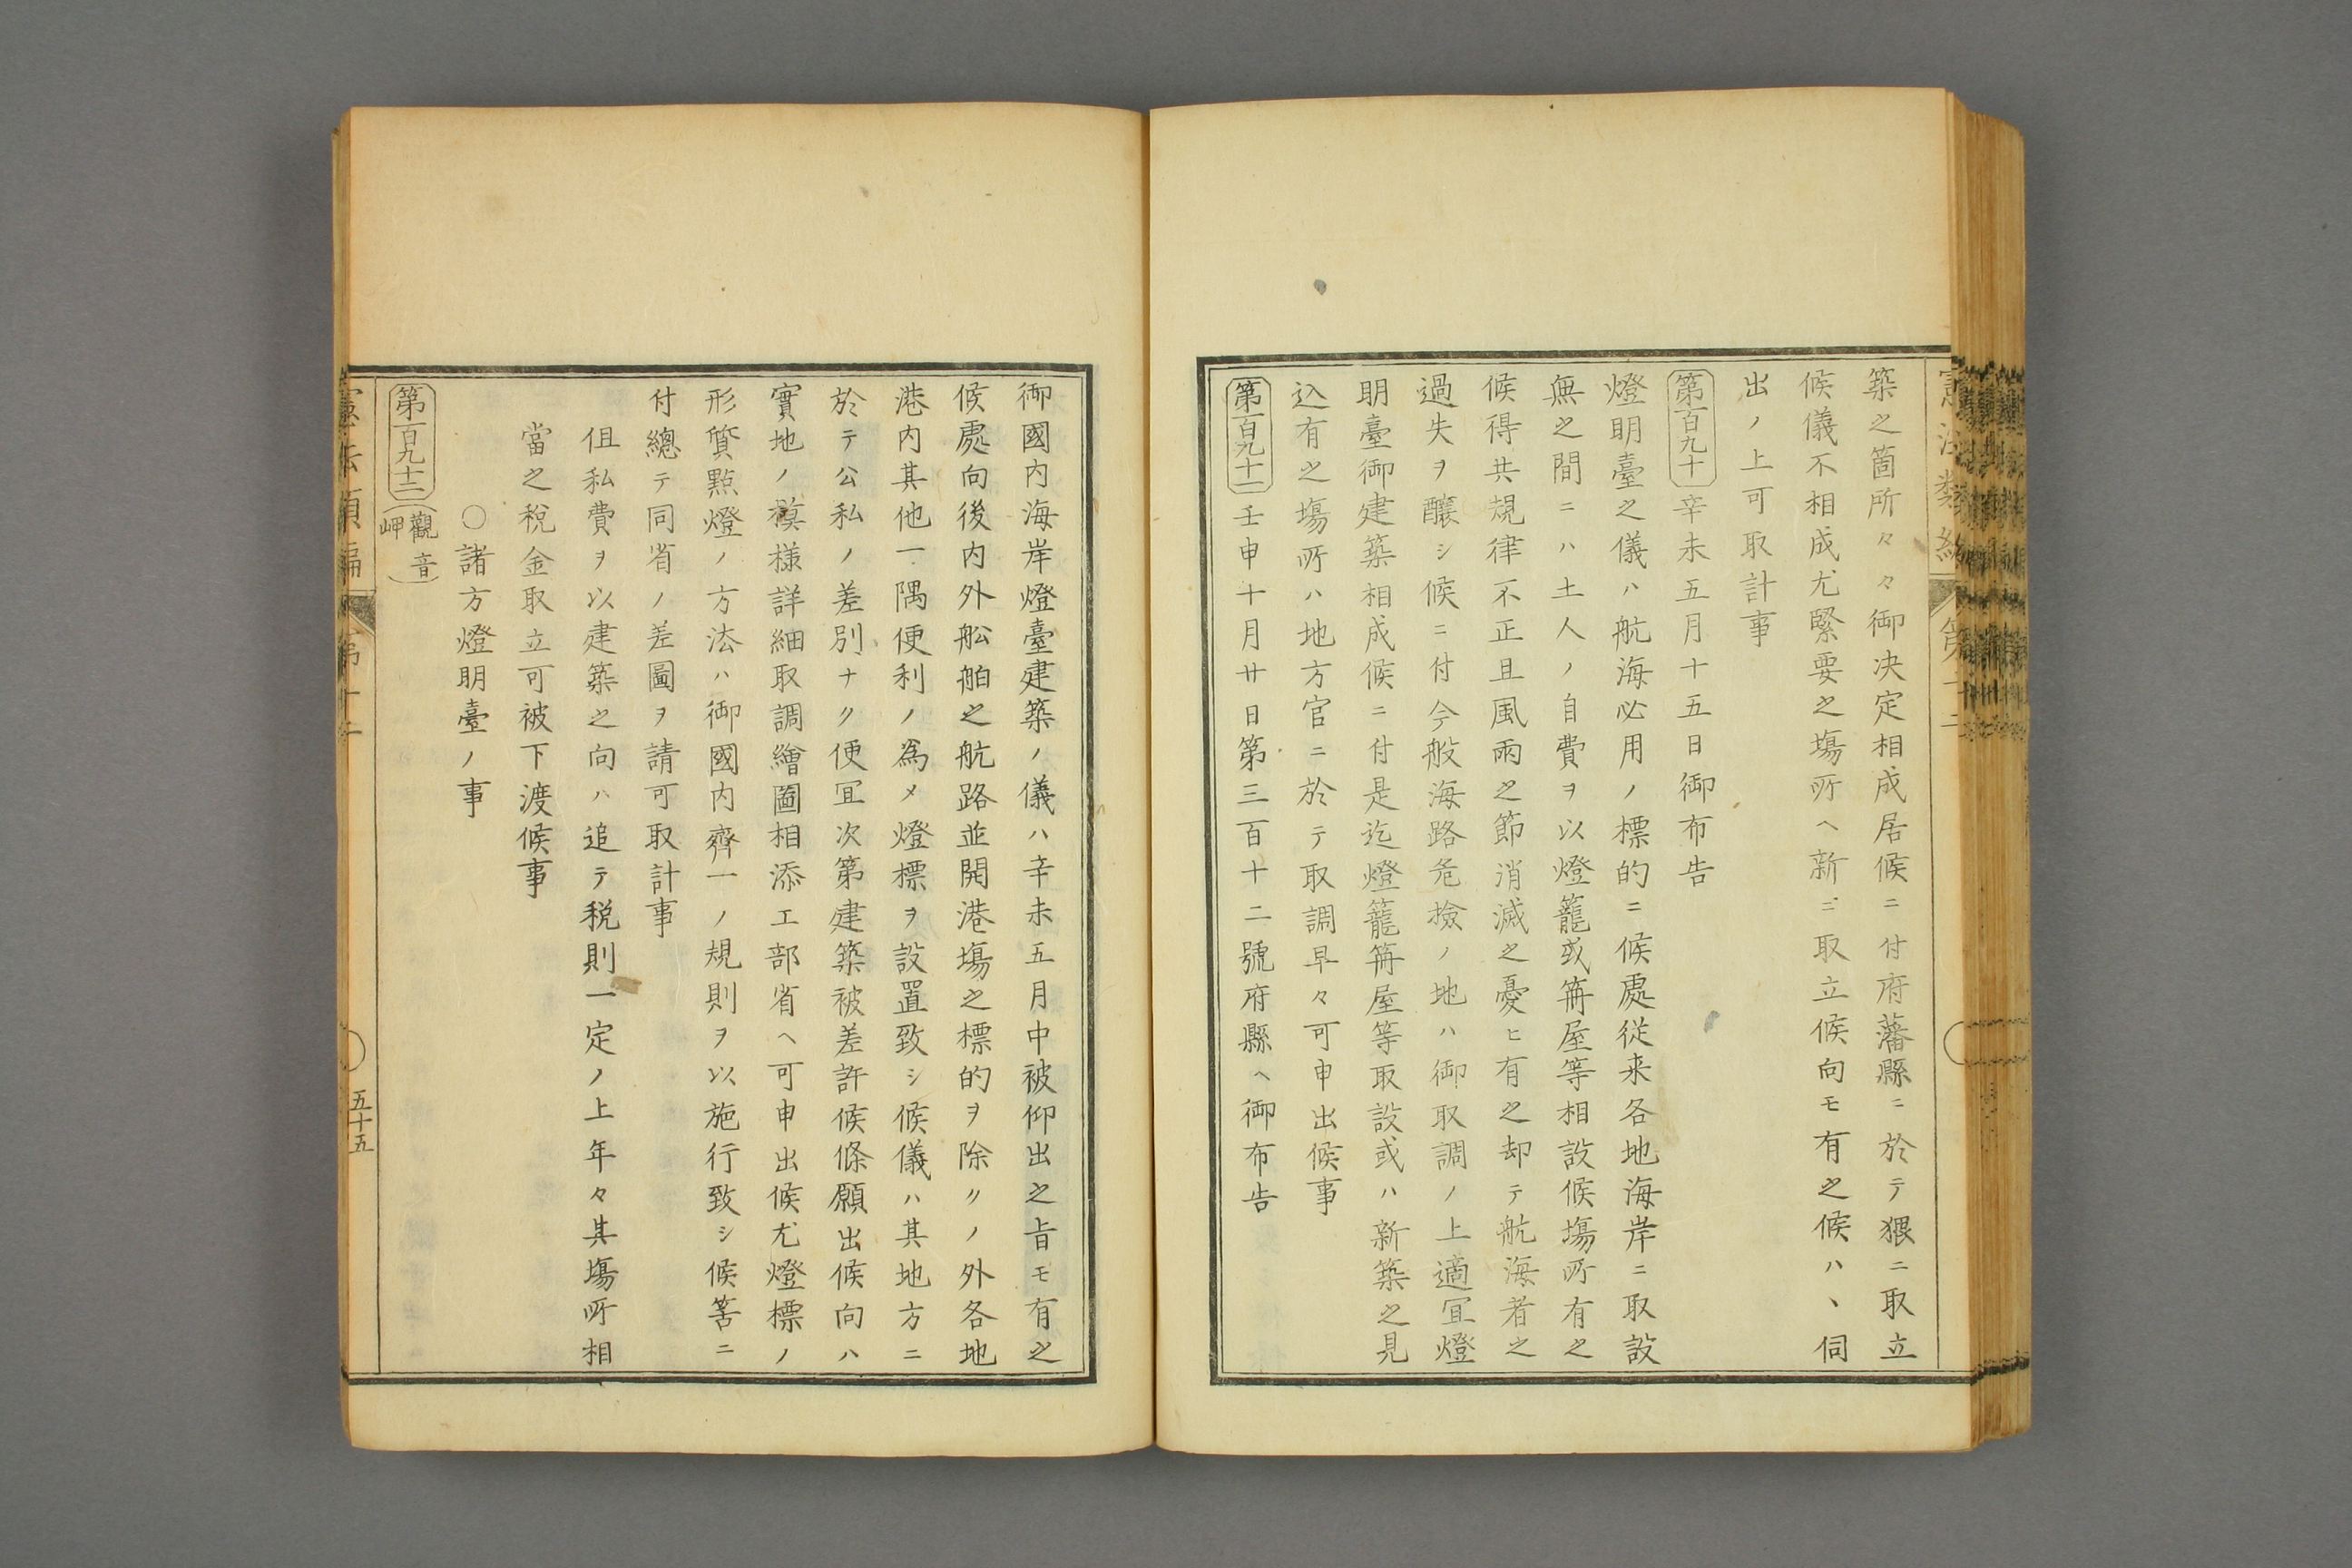 築之箇所々々御决定相成居候ニ付府藩縣ニ於テ猥ニ取立
候儀不相成尤緊要之塲所ヘ新ニ取立候向モ有之候ハヽ伺
出ノ上可取計事
第百九十 辛未五月十五日御布告
燈明臺之儀ハ航海必用ノ標的ニ候處従来各地海岸ニ取設
無之間ニハ土人ノ自費ヲ以燈籠或篝屋等相設候塲所有之
候得共規律不正且風雨之節消滅之憂ヒ有之却テ航海者之
過失ヲ釀シ候ニ付今般海路危險ノ地ハ御取調ノ上適冝燈
明臺御建築相成候ニ付是迄燈籠篝屋等取設或ハ新築之見
込有之塲所ハ地方官ニ於テ取調早々可申出候事
第百九十一 壬申十月廿日第三百十二號府縣ヘ御布告
御國内海岸燈臺建築ノ儀ハ辛未五月中被仰出之旨モ有之
候處向後内外舩舶之航路並開港塲之標的ヲ除クノ外各地
港内其他一隅便利ノ爲メ燈標ヲ設置致シ候儀ハ其地方ニ
於テ公私ノ差別ナク便冝次第建築被差許候條願出候向ハ
實地ノ模樣詳細取調繪圖相添工部省ヘ可申出候尤燈標ノ
形質點燈ノ方法ハ御國内齊一ノ規則ヲ以施行致シ候筈ニ
付總テ同省ノ差圖ヲ請可取計事
但私費ヲ以建築之向ハ追テ税則一定ノ上年々其塲所相
當之税金取立可被下渡候事
〇諸方燈明臺ノ事
第百九十二 （觀音岬）
憲法類編 第十二
五十五